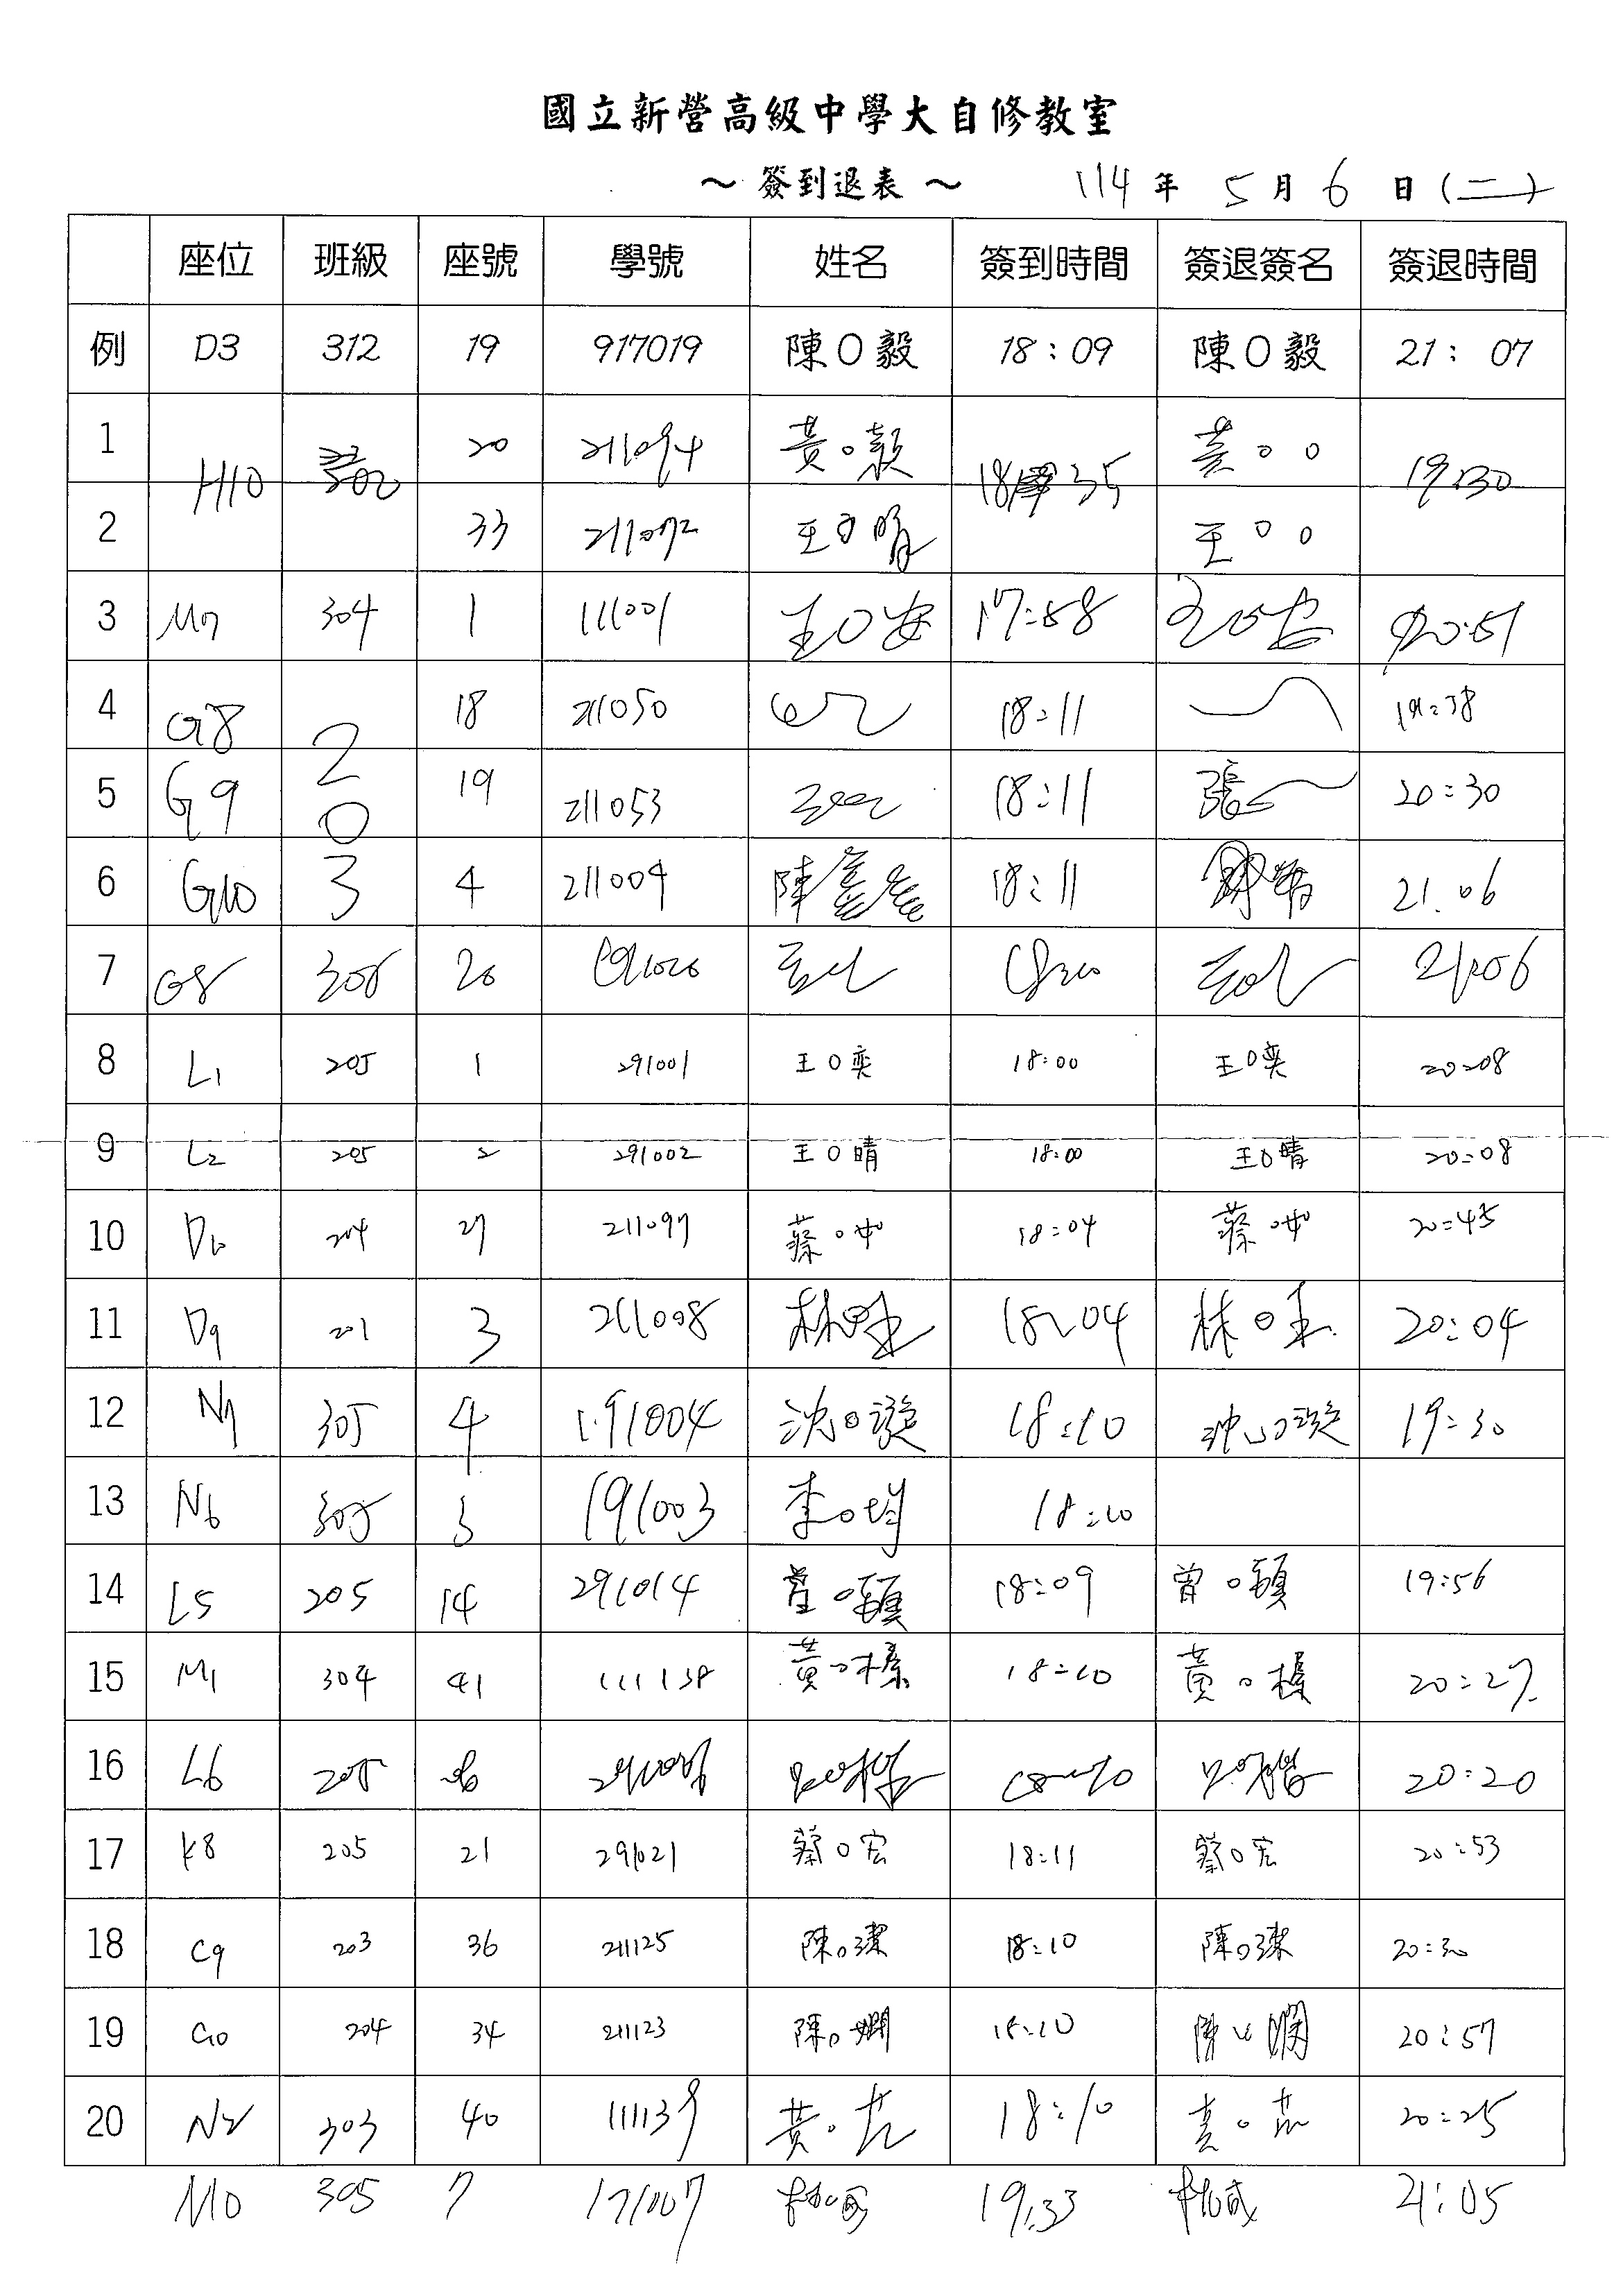 國立新營高級中學大自修教室
～ 簽到退表 ～ 114 年 5 月 6 日 (二)
座位 班級 座號 學號 姓名 簽到時間 簽退簽名 簽退時間
例 D3 312 19 917019 陳O毅 18:09 陳O毅 21:07
1 H10 20 211094 黃O穎 18 35 黃OO 19:30
2 33 211072 王O晴 王OO
3 M7 304 1 111001 王O安 17:58 20:51
4 G8 2 18 211050 18:11 19:38
5 G9 0 19 211053 18:11 張 20:30
6 G10 3 4 211009 陳 18:11 21.06
7 G8 305 20 191020 18:20 21:06
8 L1 205 1 291001 王O奕 18:00 王O奕 20:08
9 L2 205 2 291002 王O晴 18:00 王O晴 20:08
10 D10 204 27 211097 蔡O 18:04 蔡O 20:45
11 D9 201 3 211008 林O 18:04 林O 20:04
12 N7 305 4 191004 沈O漩 18:10 沈O漩 19:30
13 N6 305 3 191003 李O均 18:10
14 L5 205 14 291014 曾O頤 18:09 曾O頤 19:56
15 M1 304 41 111138 黃O榛 18:10 黃O榛 20:27
16 L6 205 6 291006 18:10 20:20
17 K8 205 21 291021 蔡O宏 18:11 蔡O宏 20:53
18 C9 203 36 211125 陳O潔 18:10 陳O潔 20:30
19 C10 204 34 211123 陳O嫻 18:10 陳O嫻 20:57
20 N2 303 40 111139 黃O 18:10 黃O 20:25
M10 305 7 191007 19:33 21:05